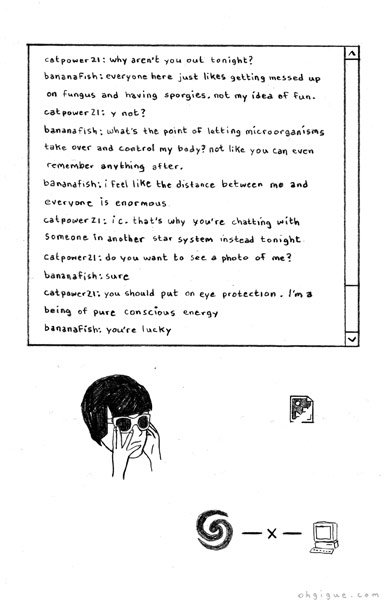 catpower21: why aren't you out tonight?
bananafish: everyone here just likes getting messed up
on fungus and having sporgies. not my idea of fun.
catpower21: y not?
bananafish: what's the point of letting microorganisms
take over and control my body? not like you can even
remember anything after.
bananafish: i feel like the distance between me and
everyone is enormous.
catpower21: ic. that's why you're chatting with
someone in another star system instead tonight.
catpower21: do you want to see a photo of me?
bananafish: sure
catpower21: you should put on eye protection. I'm a
being of pure conscious energy
bananafish: you're lucky
x
ohgigue.com